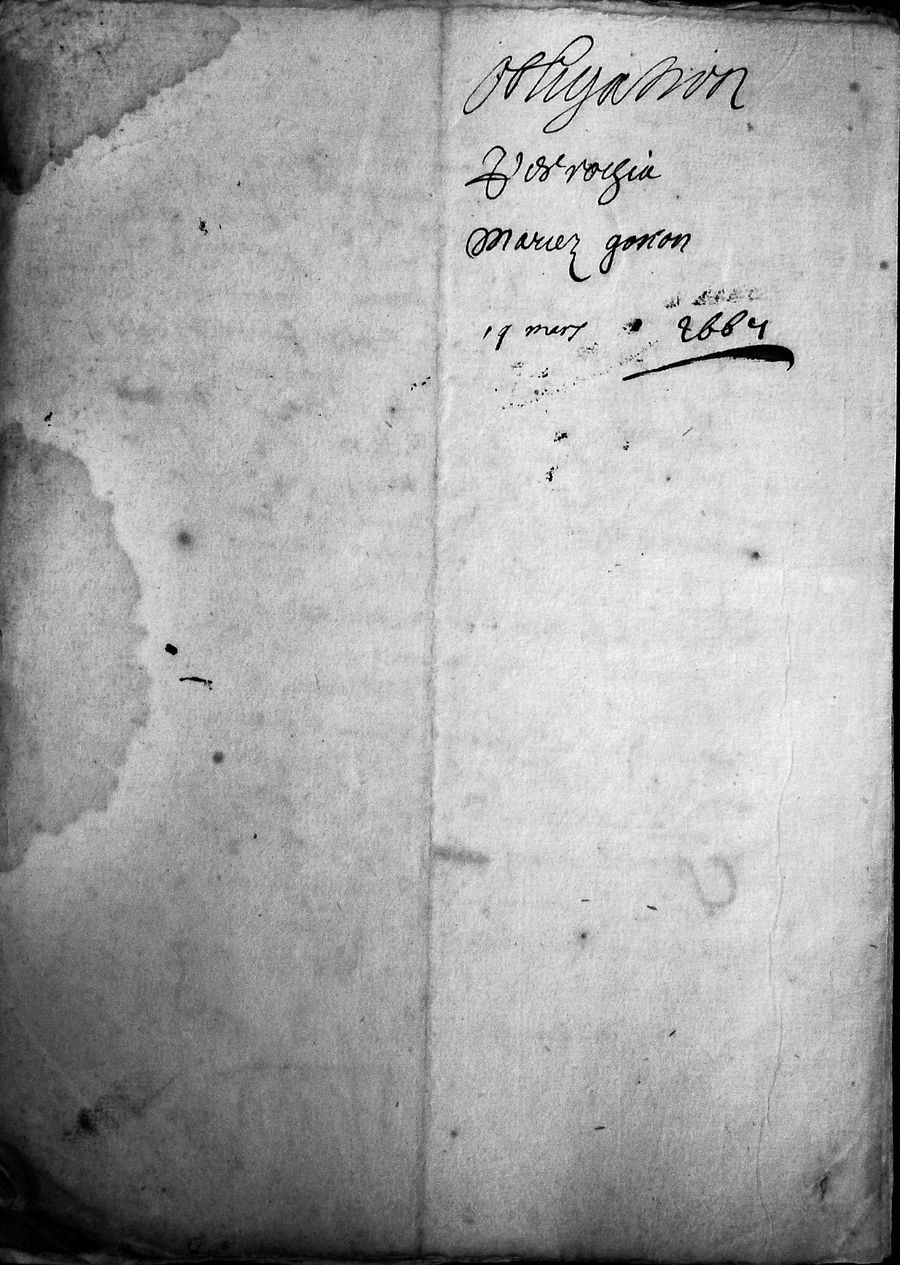 obligation
Verrochia
Mariez gonon
19 mars 1664